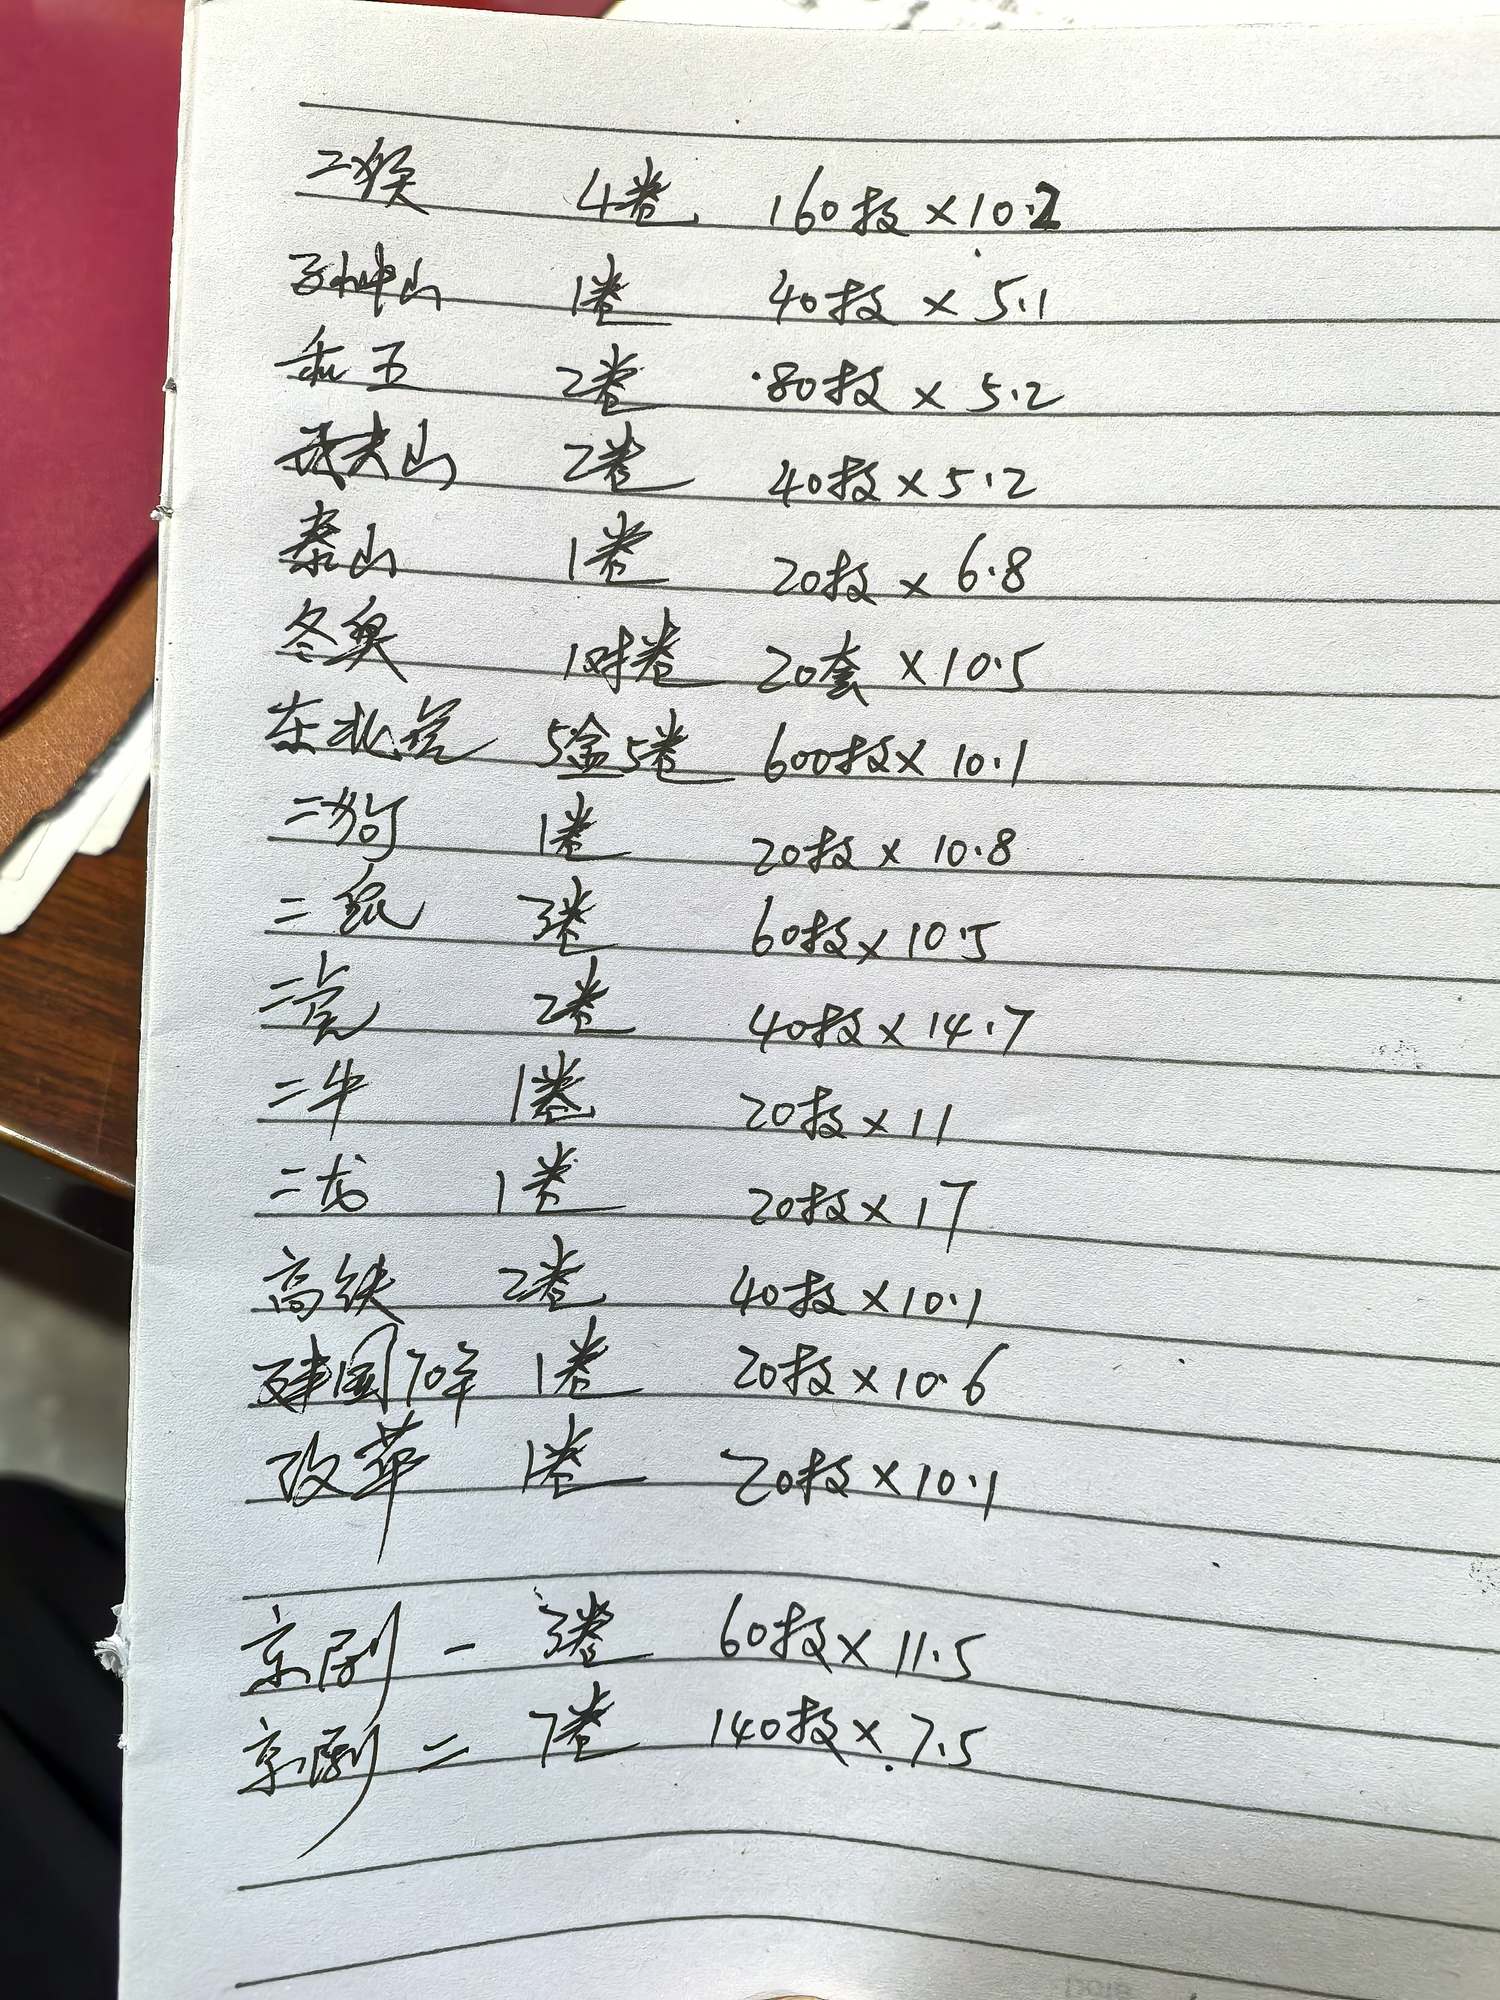 二猴 4卷 160枚×10.2
孙中山 1卷 40枚×5.1
和五 2卷 80枚×5.2
武夷山 2卷 40枚×5.2
泰山 1卷 20枚×6.8
冬奥 1对卷 20套×10.5
东北虎 5盒5卷 600枚×10.1
二狗 1卷 20枚×10.8
二鼠 3卷 60枚×10.5
二虎 2卷 40枚×14.7
二牛 1卷 20枚×11
二龙 1卷 20枚×17
高铁 2卷 40枚×10.1
建国70年 1卷 20枚×10.6
改革 1卷 20枚×10.1
京剧一 3卷 60枚×11.5
京剧二 7卷 140枚×7.5